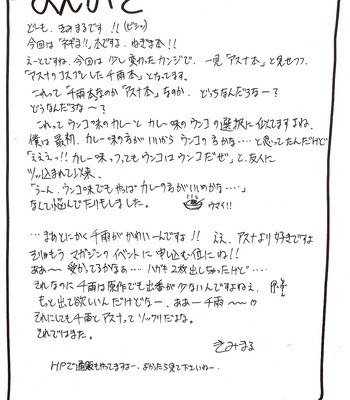 まえがき
どーも、きみまるです!!(ビシッ)
今回は「ネギま!」本ですよ、ねぎま本!!
えーとですね、今回は少し変わったカンジで、一見「アスナ本」と見せつつ、
「アスナのコスプレした千雨本」となってます。
これって「千雨本なのか「アスナ本」なのか、どっちなんだろなー?
どうなんだろな〜?
これってウンコ味のカレーとカレー味のウンコの選択に似てますよね、
僕は最初、カレー味の方がいいから ウンコのるかな…と思ってたんだけど
「えええっ!!カレー味っつってもウンコはウンコだぜ」と、友人に
ツッ込まれて以来、
「うーん、ウンコ味でもやっぱカレーの方がいいかな…」
なんて悩んでたりもしました。
ウマイ!!
…まあとにかく千雨がかわいーんですよ!!ええ、アスナより好きですよ
そりゃもう マガジンのイベントに申し込む位にね!!
ああ〜 受かってるかなぁ…ハガキ2枚出しちゃったけど…
それなのに千雨は原作でも出番が少ないんですよねえ、
もっと出て欲しいんだけどなー、ああー千雨〜
それにしても千雨とアスナってソックリだよな。
それではまた。
きみまる
HPで通販もやってますよー、よかったら見て下さいねー。